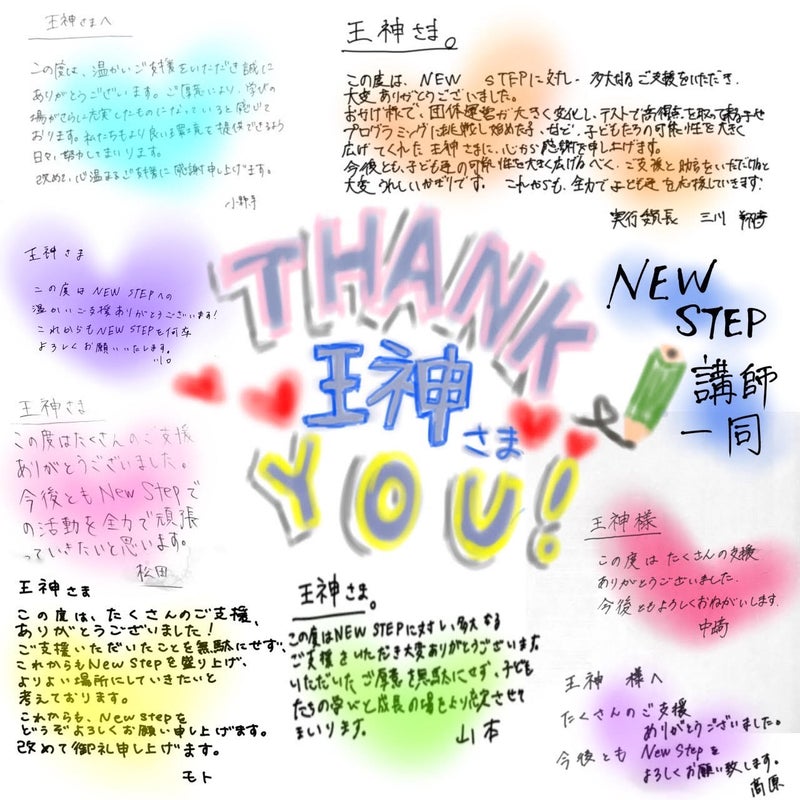 王神さまへ
この度は、温かいご支援をいただき誠に
ありがとうございます。ご厚意により、学びの
場がさらに充実したものになっていると感じて
おります。私たちもより良い環境を提供できるよう
日々努力してまいります。
改めて、心温まるご支援に感謝申し上げます。
王神さま。
この度は、NEW STEPに対し、多大なるご支援をいただき、
大変ありがとうございました。
おかげ様で、団体運営が大きく変化し、テストで高得点を取って
プログラミングに挑戦し始めた子、など、子どもたちの可能性を大きく
広げてくれた王神さまに、心から感謝を申し上げます。
今後とも、子ども達の可能性を大きく広げるべく、ご支援と助言をいただけると
大変うれしいかぎりです。これからも、全力で子ども達を応援していきます。
実行委員長 三川
王神さま
この度はNEW STEPへの
温かいご支援ありがとうございます!
これからもNEW STEPを何卒
よろしくお願いいたします。
THANK
王神
さま
YOU!
NEW
STEP
講師
一同
王神さま
この度はたくさんのご支援
ありがとうございました。
今後ともNew Stepで
の活動を全力で頑張
っていきたいと思います。
松田
王神様
この度はたくさんの支援
ありがとうございました。
今後ともよろしくおねがいします。
中崎
王神さま
この度は、たくさんのご支援、
ありがとうございました!
ご支援いただいたことを無駄にせず、
これからもNew Stepを盛り上げ、
よりよい場所にしていきたいと
考えております。
これからも、New Stepを
どうぞよろしくお願い申し上げます。
改めて御礼申し上げます。
モト
王神さま。
この度はNEW STEPに対し、多大なる
ご支援をいただき大変ありがとうございます。
いただいたご厚意を無駄にせず、子ども
たちの学びと成長の場をより充実させて
まいります。
山本
王神様へ
たくさんのご支援
ありがとうございました。
今後とも New Stepを
よろしくお願い致します。
高原